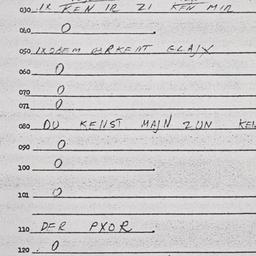 030 IR KEN IR ZI KEN MIR
040 0
050 IXOBEM GERKENT GLAJX
060 0
070 0
071 0
080 DU KENST MAJN ZUN KEN
090 0
100 0
101 0
110 DER PXOR
120 0